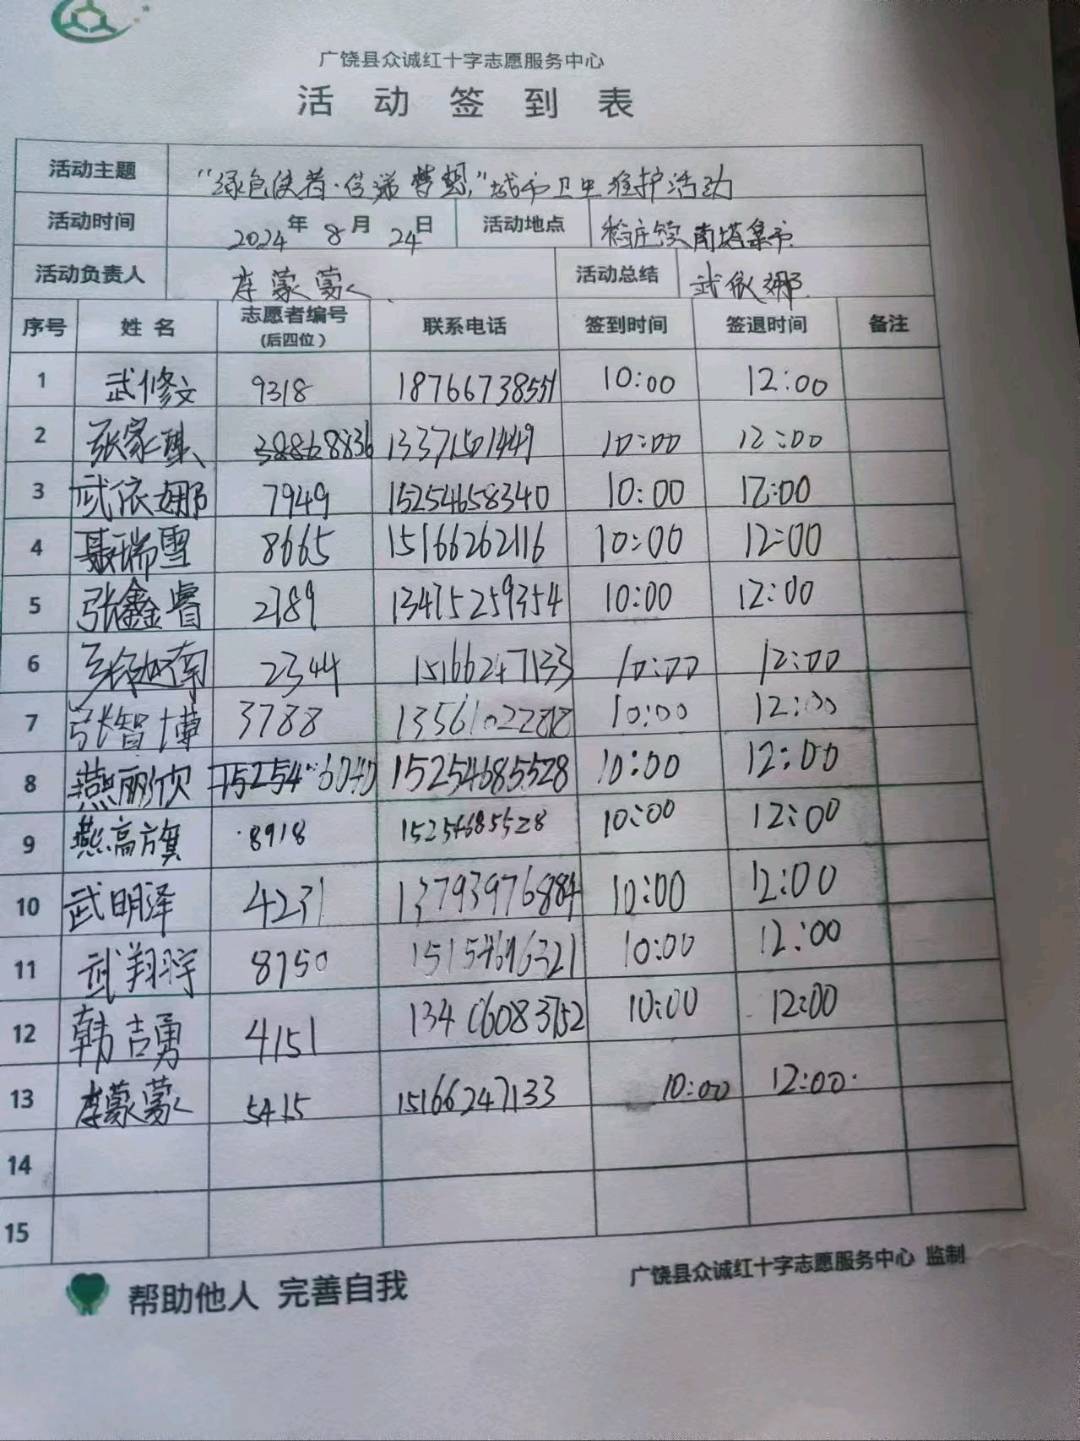 广饶县众诚红十字志愿服务中心
活动签到表
活动主题 "绿色使者·传递梦想"城市卫生维护活动
活动时间 2024年8月24日 活动地点 南塔集市
活动负责人 李蒙蒙 活动总结 武依娜
序号 姓名 志愿者编号(后四位) 联系电话 签到时间 签退时间 备注
1 武修文 9318 18766738551 10:00 12:00
2 张家琪 13371501449 10:00 12:00
3 武依娜 7949 15254658340 10:00 12:00
4 聂瑞雪 8665 15166262116 10:00 12:00
5 张鑫睿 2789 13475259354 10:00 12:00
6 2344 15166247133 10:00 12:00
7 张智博 3788 10:00 12:00
8 燕丽欣 15254685528 10:00 12:00
9 燕高旗 8918 15254685528 10:00 12:00
10 武明泽 4231 13793976884 10:00 12:00
11 武翔宇 8750 15154696321 10:00 12:00
12 韩吉勇 4151 13406083752 10:00 12:00
13 李蒙蒙 5415 15166247133 10:00 12:00
14
15
帮助他人 完善自我
广饶县众诚红十字志愿服务中心 监制